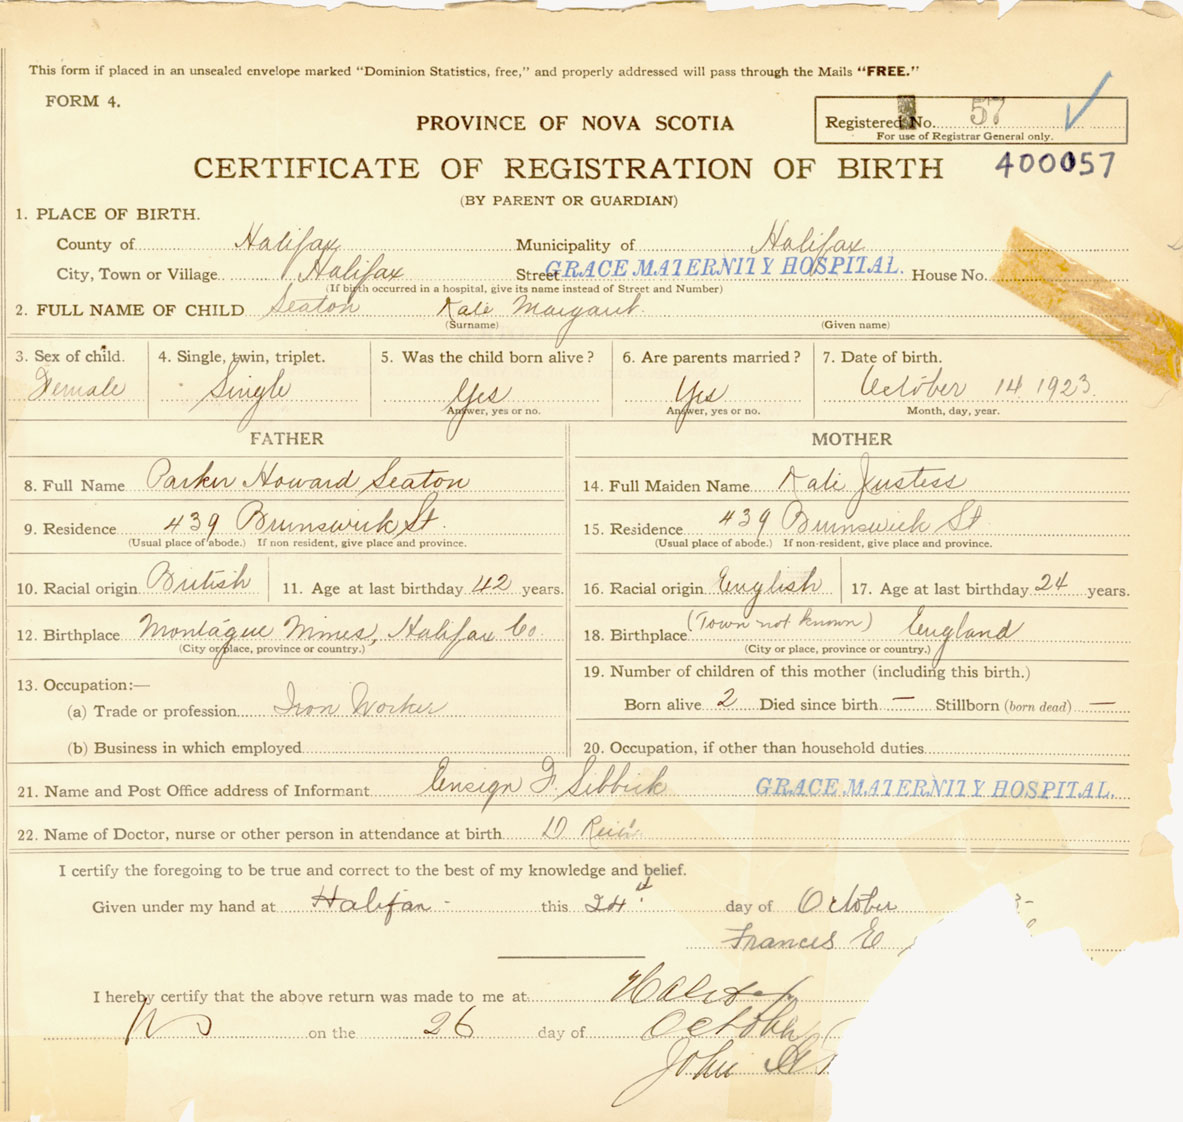 This form if placed in an unsealed envelope marked "Dominion Statistics, free," and properly addressed will pass through the Mails "FREE."
FORM 4.
Registered No. 57
For use of Registrar General only.
PROVINCE OF NOVA SCOTIA
CERTIFICATE OF REGISTRATION OF BIRTH 400057
(BY PARENT OR GUARDIAN)
1. PLACE OF BIRTH.
County of Halifax Municipality of Halifax
City, Town or Village Halifax Street GRACE MATERNITY HOSPITAL. House No.
(If birth occurred in a hospital, give its name instead of Street and Number)
2. FULL NAME OF CHILD Seaton Kate Margaret
(Surname) (Given name)
3. Sex of child. 4. Single, twin, triplet. 5. Was the child born alive? 6. Are parents married? 7. Date of birth.
Female Single Yes Yes October 14 1923.
Answer, yes or no. Answer, yes or no. Month, day, year.
FATHER MOTHER
8. Full Name Parker Howard Seaton 14. Full Maiden Name Kate Justess
9. Residence 439 Brunswick St. 15. Residence 439 Brunswick St.
(Usual place of abode.) If non resident, give place and province. (Usual place of abode.) If non-resident, give place and province.
10. Racial origin British 11. Age at last birthday 42 years. 16. Racial origin English 17. Age at last birthday 24 years.
12. Birthplace Montague Mines, Halifax Co. 18. Birthplace (Town not known) England
(City or place, province or country.) (City or place, province or country.)
13. Occupation:— 19. Number of children of this mother (including this birth.)
(a) Trade or profession Iron Worker Born alive 2 Died since birth — Stillborn (born dead) —
(b) Business in which employed 20. Occupation, if other than household duties
21. Name and Post Office address of Informant Ensign F. Sibbick GRACE MATERNITY HOSPITAL.
22. Name of Doctor, nurse or other person in attendance at birth D
I certify the foregoing to be true and correct to the best of my knowledge and belief.
Given under my hand at Halifax - this 24th day of October
Frances E
I hereby certify that the above return was made to me at Halifax
NS on the 26 day of October
John